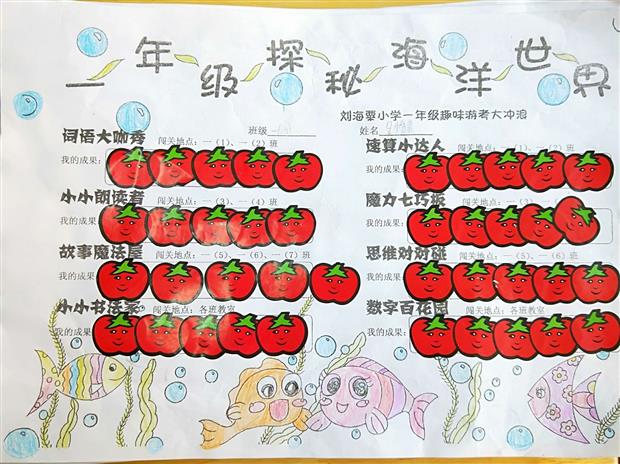 一年级探秘海洋世界
刘海粟小学一年级趣味游考大冲浪
班级 姓名
词语大咖秀 闯关地点：一（1）、一（2）班
我的成果：
速算小达人 闯关地点：一（1）、一（2）班
我的成果：
小小朗读者 闯关地点：一（3）、一（4）班
我的成果：
魔力七巧板 闯关地点：一（3）、一（4）班
我的成果：
故事魔法屋 闯关地点：一（5）、一（6）、一（7）班
我的成果：
思维对对碰 闯关地点：一（5）、一（6）班
我的成果：
小小书法家 闯关地点：各班教室
我的成果：
数字百花园 闯关地点：各班教室
我的成果：